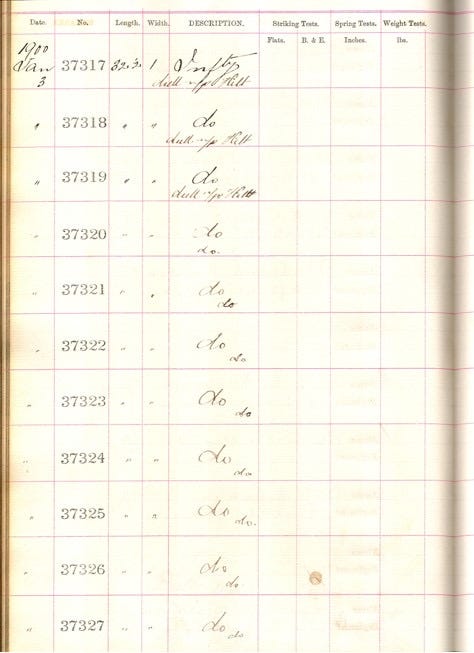 Date. No. Length. Width. DESCRIPTION. Striking Tests. Spring Tests. Weight Tests.
Flats. B. & E. Inches. lbs.
1900
Jan 37317 32½ 1 Infty
3 dull n/p Hilt
" 37318 " " do
dull n/p Hilt
" 37319 " " do
dull n/p Hilt
" 37320 " " do
do.
" 37321 " " do
do
" 37322 " " do
do
" 37323 " " do
do
" 37324 " " do
do
" 37325 " " do
do.
" 37326 " " do
do
" 37327 " " do
do